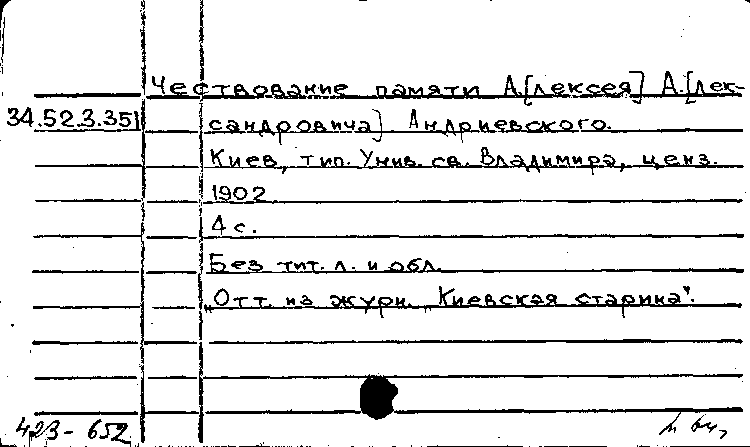 Чествование памяти А.[лексея] А.[лек-
34.52.3.351 сандровича] Андриевского.
Киев, тип. Унив. св. Владимира, ценз.
1902
4 с.
Без тит. л. и обл.
„Отт. из журн. „Киевская старина".
423-652